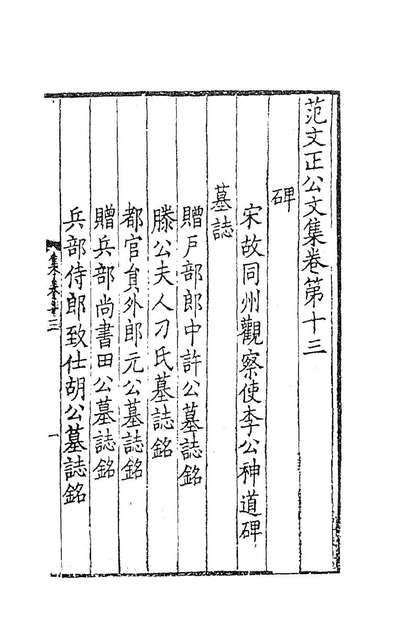 范文正公文集卷第十三
碑
宋故同州觀察使李公神道碑
墓誌
贈戶部郎中許公墓誌銘
滕公夫人刁氏墓誌銘
都官貟外郎元公墓誌銘
贈兵部尚書田公墓誌銘
兵部侍郎致仕胡公墓誌銘
一